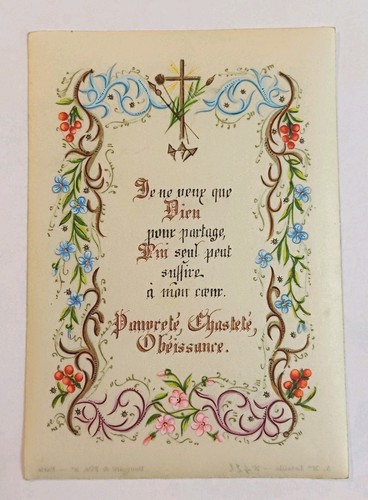 Je ne veux que
Dieu
pour partage,
Lui seul peut
suffire
à mon cœur.
Pauvreté, Chasteté,
Obéissance.